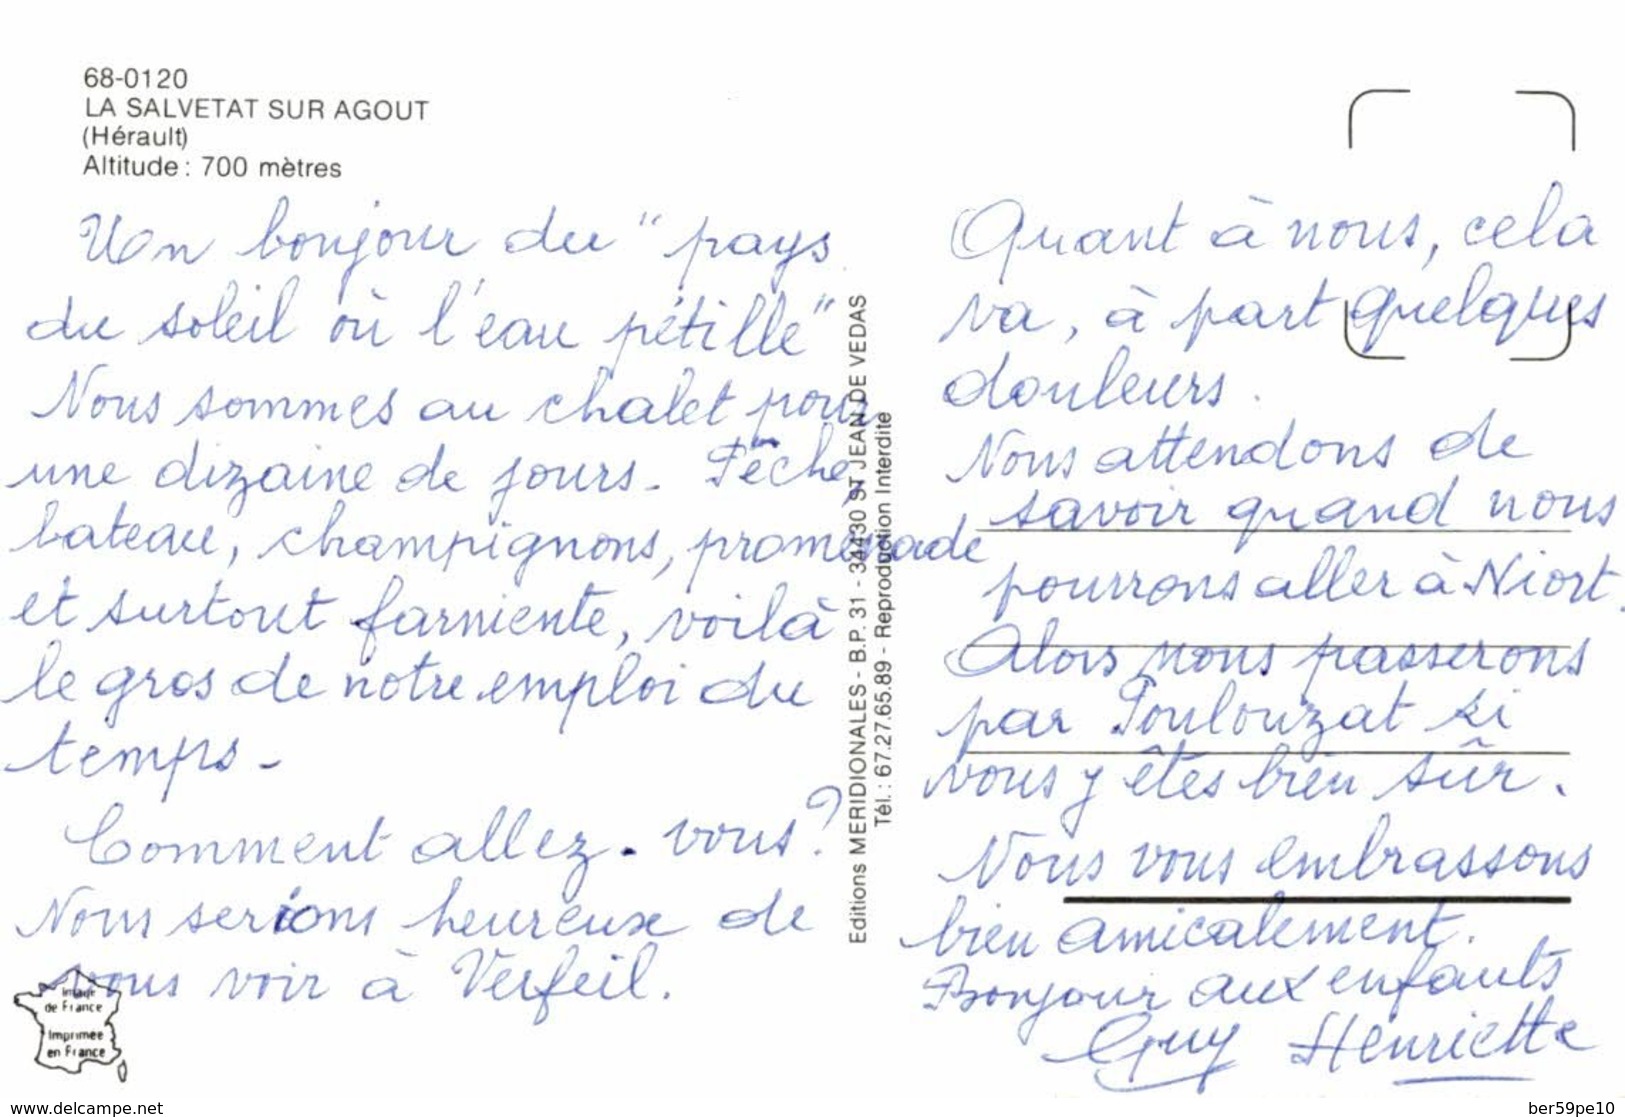 68-0120
LA SALVETAT SUR AGOUT
(Hérault)
Altitude : 700 mètres
Un bonjour du "pays
du soleil où l'eau pétille"
Nous sommes au chalet pour
une dizaine de jours. Pêche,
bateau, champignons, promenade
et surtout farniente, voilà
le gros de notre emploi du
temps.
Comment allez-vous?
Nous serions heureux de
vous voir à Verfeil.
Image
de France
Imprimée
en France
Editions MERIDIONALES - B.P. 31 - 34430 ST JEAN DE VEDAS
Tél. : 67.27.65.89 - Reproduction Interdite
Quant à nous, cela
va, à part quelques
douleurs.
Nous attendons de
savoir quand nous
pourrons aller à Niort.
Alors nous passerons
par Poulouzat si
vous y êtes bien sûr.
Nous vous embrassons
bien amicalement.
Bonjour aux enfants
Guy Henriette
www.delcampe.net
ber59pe10